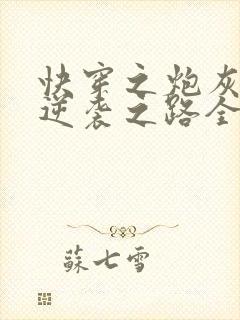 快穿之炮灰
逆袭之路全
蘇七雪